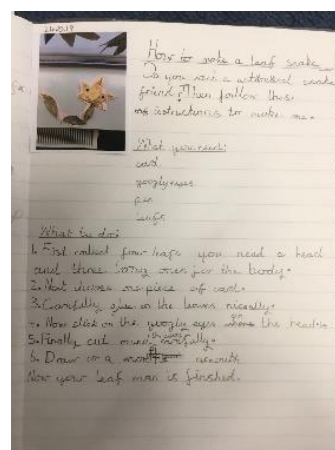 How to make a leaf snake
Do you want a natural snake
friend? Then follow these
instructions to make me.
What you need:
card
googly eyes
pen
leafs
What to do:
1. First collect four leafs you need a head
and three long ones for the body.
2. Next choose one piece of card.
3. Carefully glue on the leaves nically.
4. Now stick on the googly eyes on the head.
5. Finally cut carfully.
6. Draw on a mouth
Now your leaf man is finished.